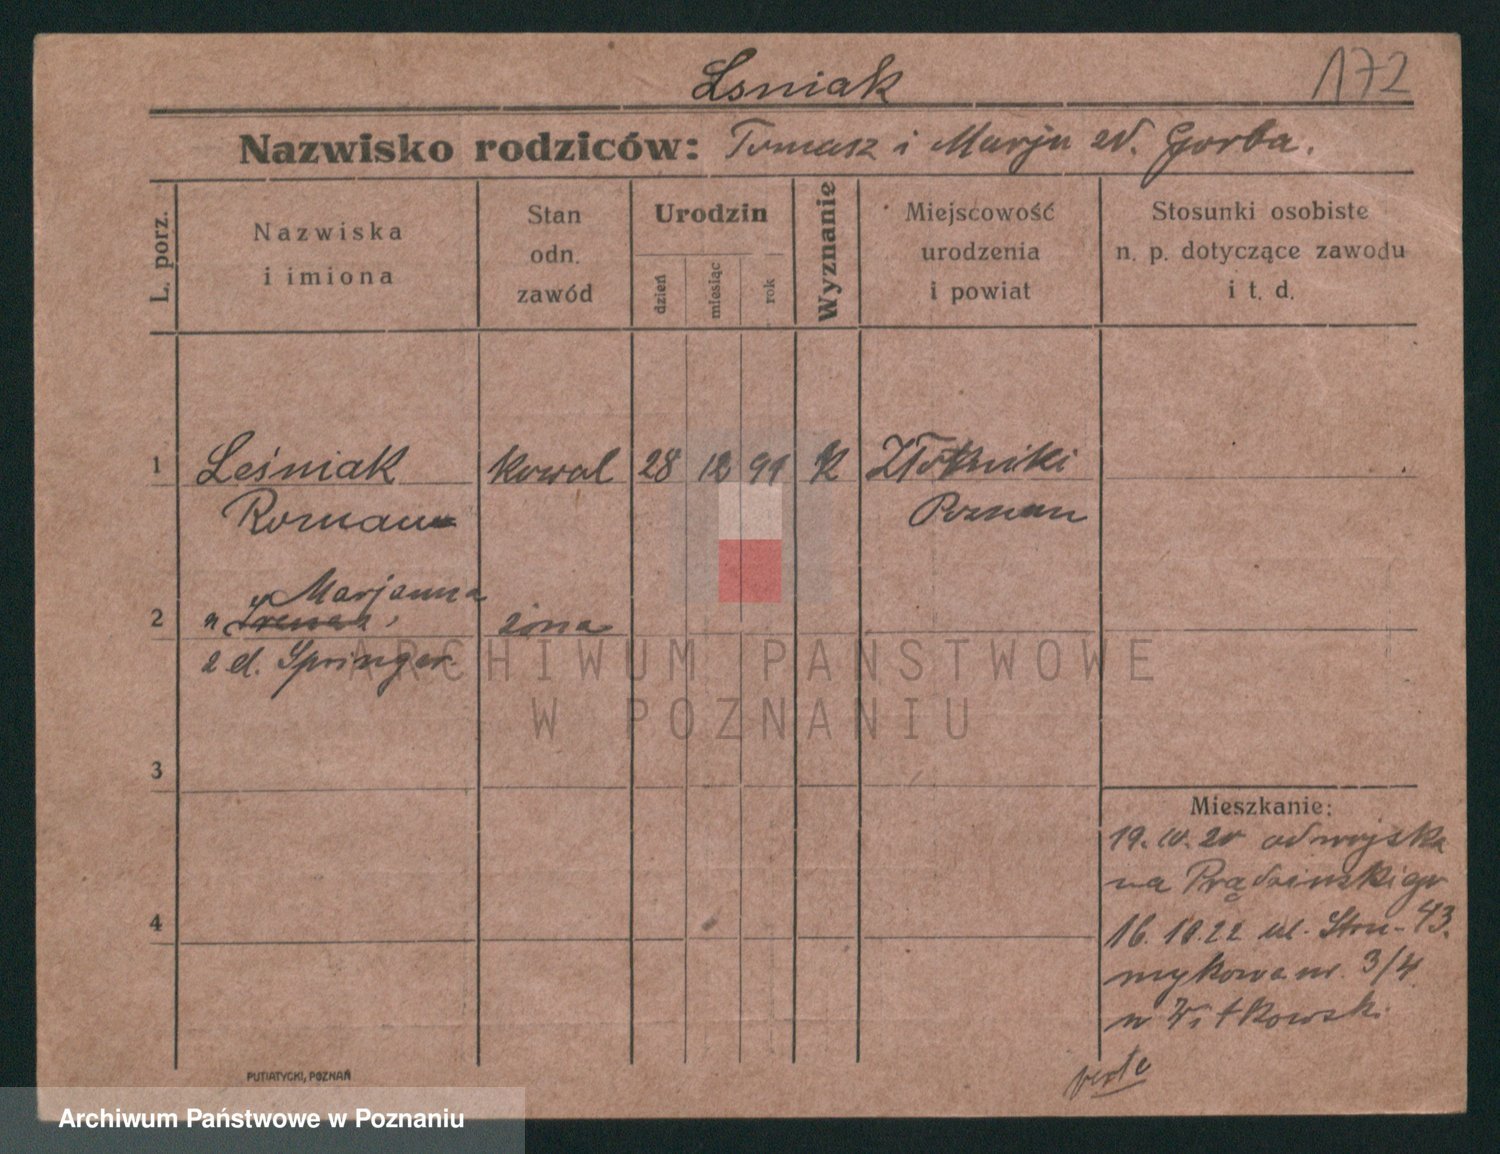 Lsniak
172
Nazwisko rodziców: Tomasz i Marja zd. Gorba.
L. porz.
Nazwiska
i imiona
Stan
odn.
zawód
Urodzin
dzień
miesiąc
rok
Wyznanie
Miejscowość
urodzenia
i powiat
Stosunki osobiste
n. p. dotyczące zawodu
i t. d.
1 Leśniak kowal 28 12 91 K Złotniki
Roman Poznan
" Marjanna
2 " Irena, żona
z d. Springer
3
4
Mieszkanie:
19. 10. 20 od wojska
na Prądzinskiego
43.
16. 10. 22 ul. Stru-
mykowa nr. 3/4
w Witkowski
verte
PUTIATYCKI, POZNAŃ
ARCHIWUM PAŃSTWOWE
W POZNANIU
Archiwum Państwowe w Poznaniu